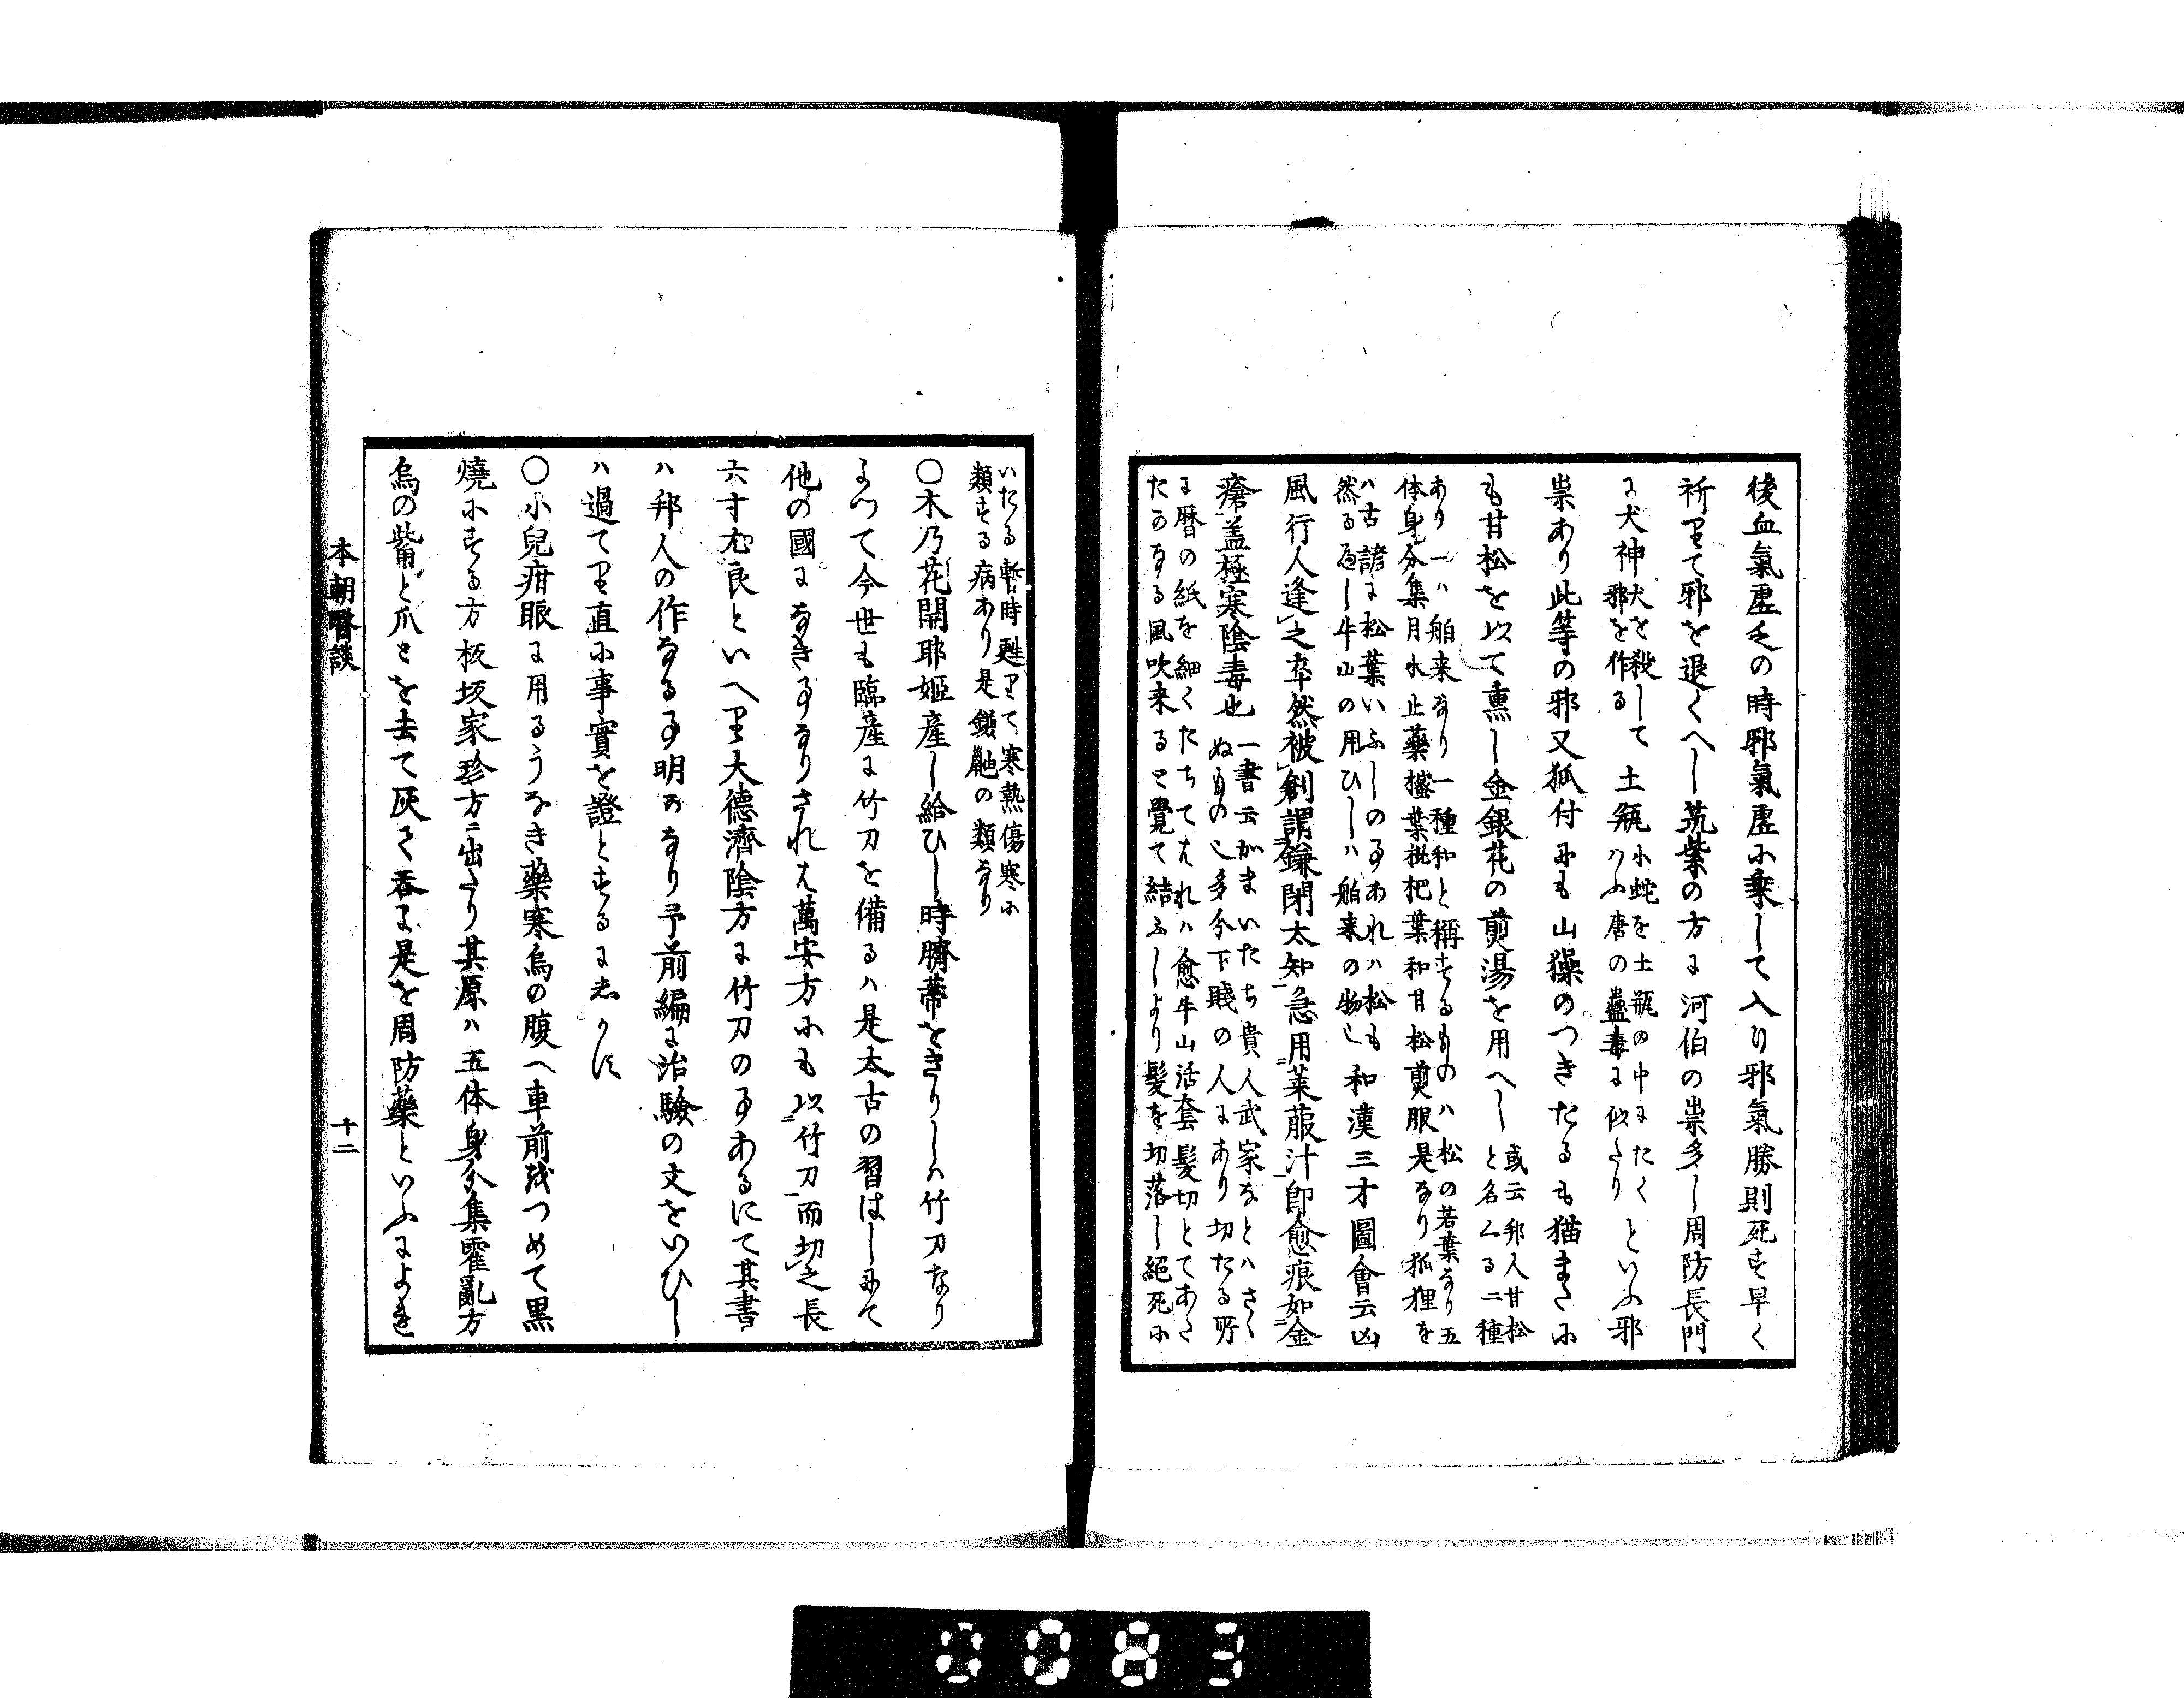 後血氣虚乏の時邪氣虚に乗して入り邪氣勝則死す早く
祈りて邪を退くへし筑紫の方に河伯の祟多し周防長門
に犬神
犬を殺して
邪を作る
土瓶
小蛇を土瓶の中にたく
はふ唐の蠱毒に似たり
といふ邪
祟あり此等の邪又狐付にも山𤢖のつきたるも猫またに
も甘松を以て熏し金銀花の煎湯を用へし
或云邦人甘松
と名くる二種
あり一ハ舶来なり一種和と稱するものハ松の若葉なり五
体身分集月水止藥櫁葉枇杷葉和甘松煎服是なり狐狸を
ハ古諺に松葉いふしの事あれハ松も
然る面し牛山の用ひしハ舶来の物也
和漢三才圖會云凶
風行人逢之卒然被創謂鎌閉太知急用莱菔汁即愈痕如金
瘡盖極寒陰毒也
一書云かまいたち貴人武家なとハさく
ぬもの也多分下賤の人にあり切たる所
に暦の紙を細くたちてはれハ愈牛山活套髪切とてあた
たかなる風吹来ると覺て結ふしより髪を切落し絶死に
いたる暫時甦りて寒熱傷寒に
類する病あり是鎌鼬の類なり
〇木乃花開耶姫産し給ひし時臍蔕をきりしハ竹刀なり
よつて今世も臨産に竹刀を備るハ是太古の習はしにて
他の國になき事なりされは萬安方にも以竹刀而切之長
六寸尤良といへり大德濟陰方に竹刀の事あるにて其書
ハ邦人の作なる事明かなり予前編に治驗の文をいひし
ハ過てり直に事實を證とするにしかす
〇小兒疳眼に用るうなき藥寒烏の腹へ車前試つめて黒
燒にする方板坂家珍方ニ出たり其原ハ五体身分集霍亂方
烏の觜と爪とを去て灰て呑に是を周防藥といふによれ
本朝醫談
十二
0083